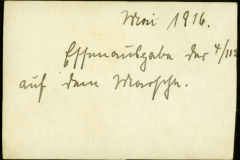 Mai 1916.
Essenausgabe der 4/112
auf dem Marsche.